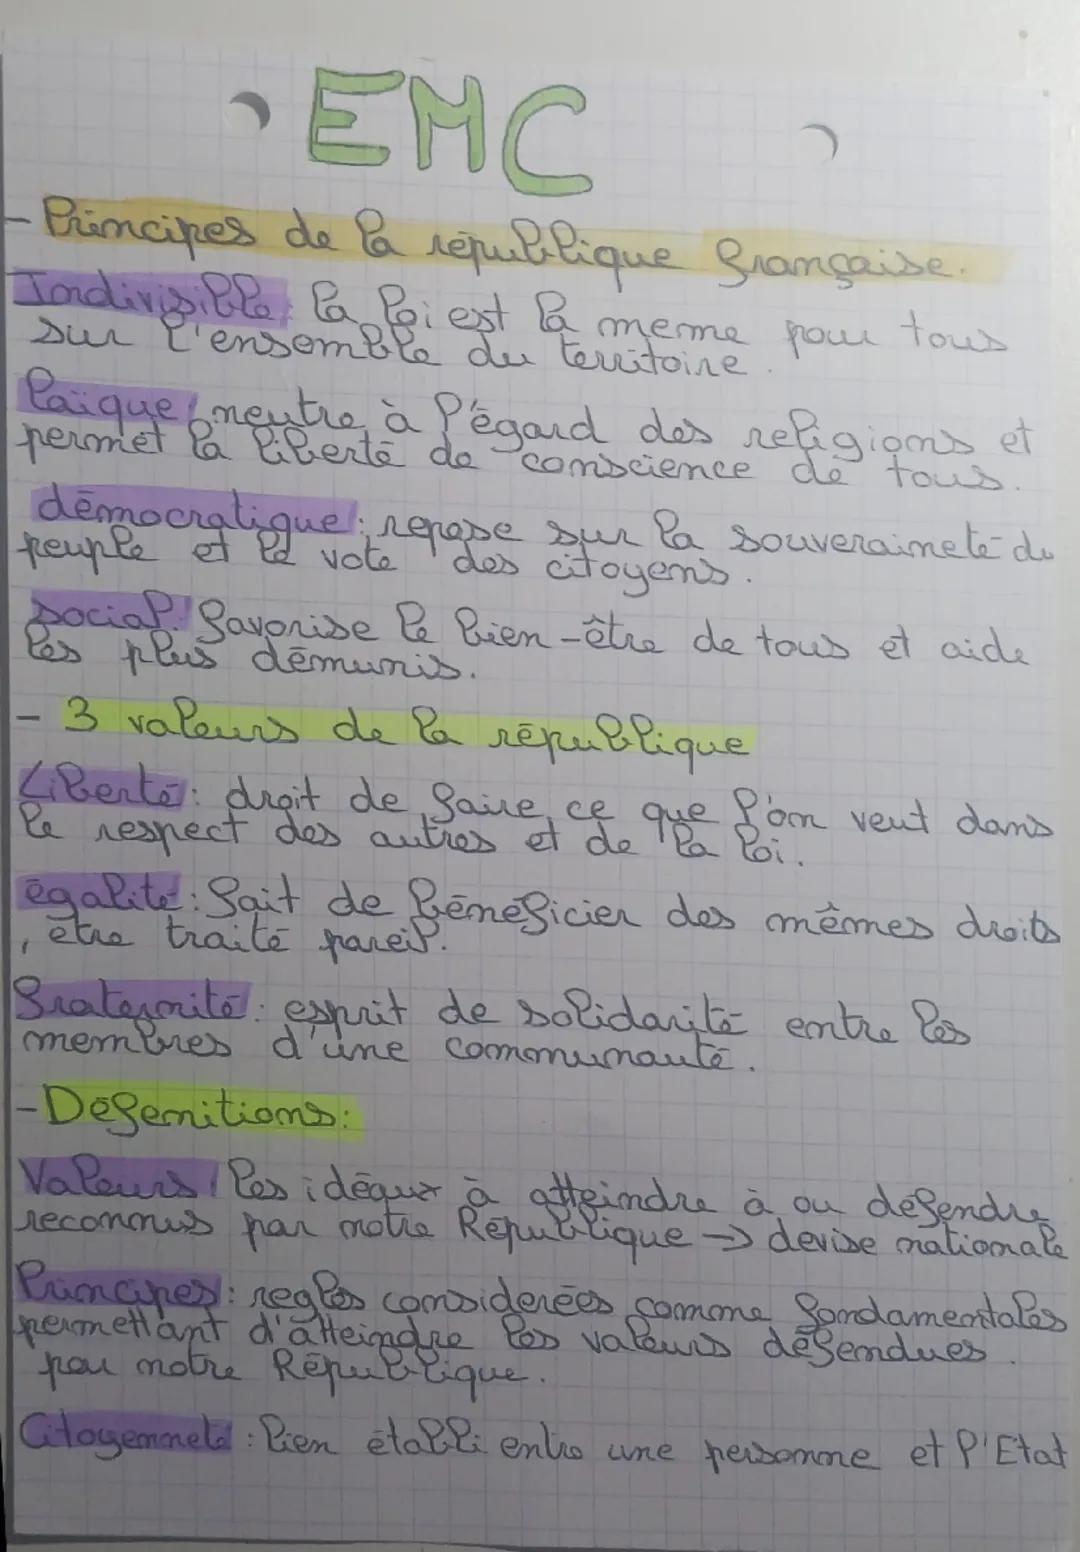 EMC
- Principes de la république française.
Indivisible: la loi est la meme pour tous
sur l'ensemble du territoire.
laïque: neutre à l'égard des religions et
permet la liberté de conscience de tous.
démocratique: repose sur la souveraineté du
peuple et le vote des citoyens.
social: favorise le bien-être de tous et aide
les plus démunis.
- 3 valeurs de la république
Liberté: droit de faire ce que l'on veut dans
le respect des autres et de la loi.
égalité: fait de bénéficier des mêmes droits
, être traité pareil.
fraternité: esprit de solidarité entre les
membres d'une communauté.
- Définitions:
Valeurs: les idéaux à atteindre à ou défendre
reconnus par notre République → devise nationale
Principes: regles considerées comme fondamentales
permettant d'atteindre les valeurs défendues
par notre République.
Citoyenneté: lien établi entre une personne et l'Etat